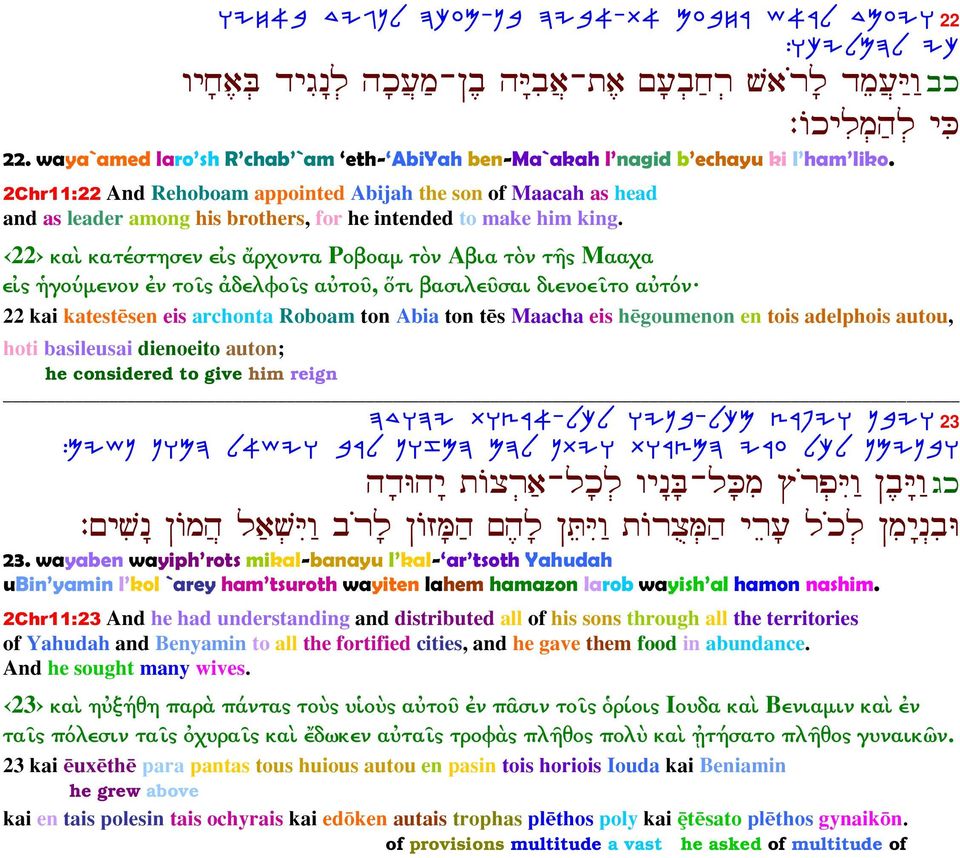 22 𐤅𐤉𐤏𐤌𐤃 𐤋𐤓𐤀𐤔 𐤓𐤇𐤁𐤏𐤌 𐤀𐤕-𐤀𐤁𐤉𐤄 𐤁𐤍-𐤌𐤏𐤊𐤄 𐤋𐤍𐤂𐤉𐤃 𐤁𐤀𐤇𐤉𐤅
𐤊𐤉 𐤋𐤄𐤌𐤋𐤉𐤊𐤅:
כב וַיַּעֲמֵד לָרֹאשׁ רְחַבְעָם אֶת־אֲבִיָּה בֶן־מַעֲכָה לְנָגִיד בְּאֶחָיו
כִּי לְהַמְלִיכוֹ:
22. waya`amed laro’sh R’chab’`am ‘eth-‘AbiYah ben-Ma`akah l’nagid b’echayu ki l’ham’liko.
2Chr11:22 And Rehoboam appointed Abijah the son of Maacah as head
and as leader among his brothers, for he intended to make him king.
‹22› καὶ κατέστησεν εἰς ἄρχοντα Ροβοαμ τὸν Αβια τὸν τῆς Μααχα
εἰς ἡγούμενον ἐν τοῖς ἀδελφοῖς αὐτοῦ, ὅτι βασιλεῦσαι διενοεῖτο αὐτόν·
22 kai katestēsen eis archonta Roboam ton Abia ton tēs Maacha eis hēgoumenon en tois adelphois autou,
hoti basileusai dienoeito auton;
he considered to give him reign
23 𐤅𐤉𐤁𐤍 𐤅𐤉𐤐𐤓𐤑 𐤌𐤊𐤋-𐤁𐤍𐤉𐤅 𐤋𐤊𐤋-𐤀𐤓𐤑𐤅𐤕 𐤉𐤄𐤅𐤃𐤄
𐤅𐤁𐤍𐤉𐤌𐤍 𐤋𐤊𐤋 𐤏𐤓𐤉 𐤄𐤌𐤑𐤓𐤅𐤕 𐤅𐤉𐤕𐤍 𐤋𐤄𐤌 𐤄𐤌𐤆𐤅𐤍 𐤋𐤓𐤁 𐤅𐤉𐤔𐤀𐤋 𐤄𐤌𐤅𐤍 𐤍𐤔𐤉𐤌:
כג וַיָּבֶן וַיִּפְרֹץ מִכָּל־בָּנָיו לְכָל־אַרְצוֹת יְהוּדָה
וּבִנְיָמִן לְכֹל עָרֵי הַמְּצֻרוֹת וַיִּתֵּן לָהֶם הַמָּזוֹן לָרֹב וַיִּשְׁאַל הֲמוֹן נָשִׁים:
23. wayaben wayiph’rots mikal-banayu l’kal-‘ar’tsoth Yahudah
uBin’yamin l’kol `arey ham’tsuroth wayiten lahem hamazon larob wayish’al hamon nashim.
2Chr11:23 And he had understanding and distributed all of his sons through all the territories
of Yahudah and Benyamin to all the fortified cities, and he gave them food in abundance.
And he sought many wives.
‹23› καὶ ηὐξήθη παρὰ πάντας τοὺς υἱοὺς αὐτοῦ ἐν πᾶσιν τοῖς ὁρίοις Ιουδα καὶ Βενιαμιν καὶ ἐν
ταῖς πόλεσιν ταῖς ὀχυραῖς καὶ ἔδωκεν αὐταῖς τροφὰς πλῆθος πολὺ καὶ ᾐτήσατο πλῆθος γυναικῶν.
23 kai ēuxēthē para pantas tous huious autou en pasin tois horiois Iouda kai Beniamin
he grew above
kai en tais polesin tais ochyrais kai edōken autais trophas plēthos poly kai ētēsato plēthos gynaikōn.
of provisions multitude a vast he asked of multitude of